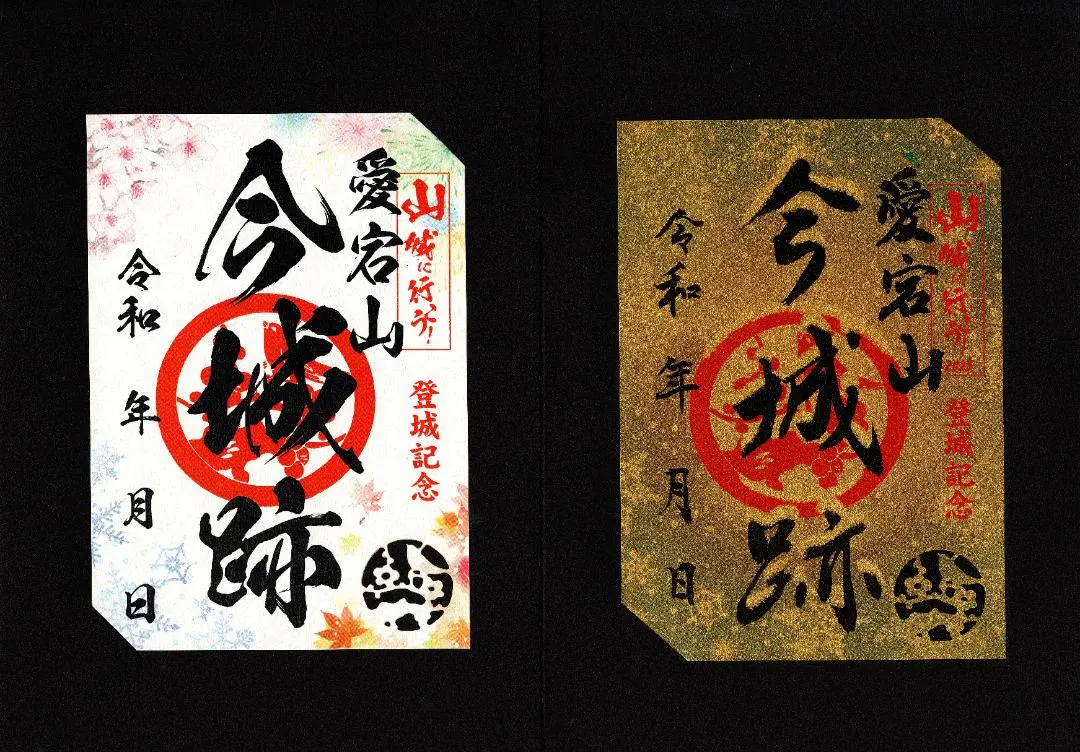 山城に行こう!
登城記念
愛宕山
今城跡
令和 年 月 日
山城に行こう!
登城記念
愛宕山
今城跡
令和 年 月 日